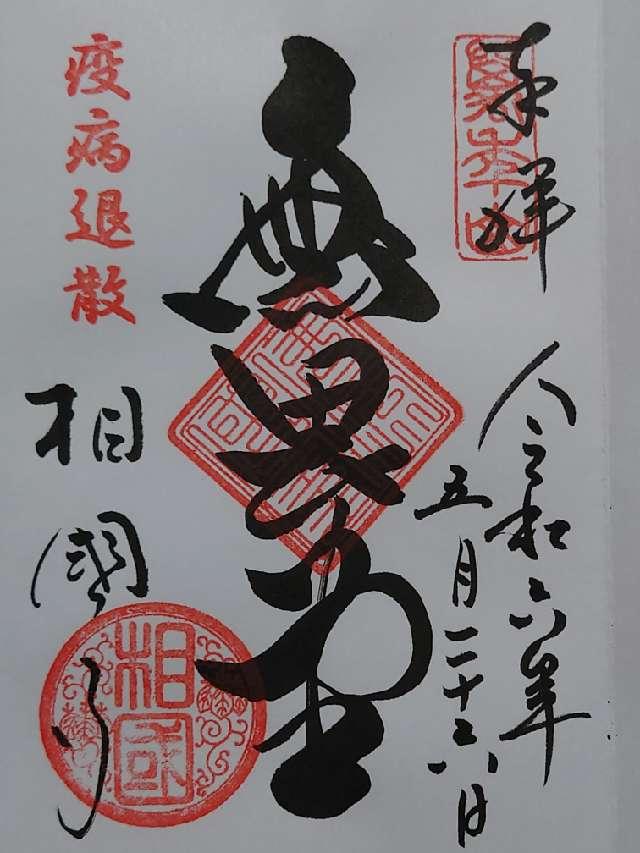 奉拝
萬年山
令和六年
五月二十六日
無畏堂
疫病退散
相國寺
相國